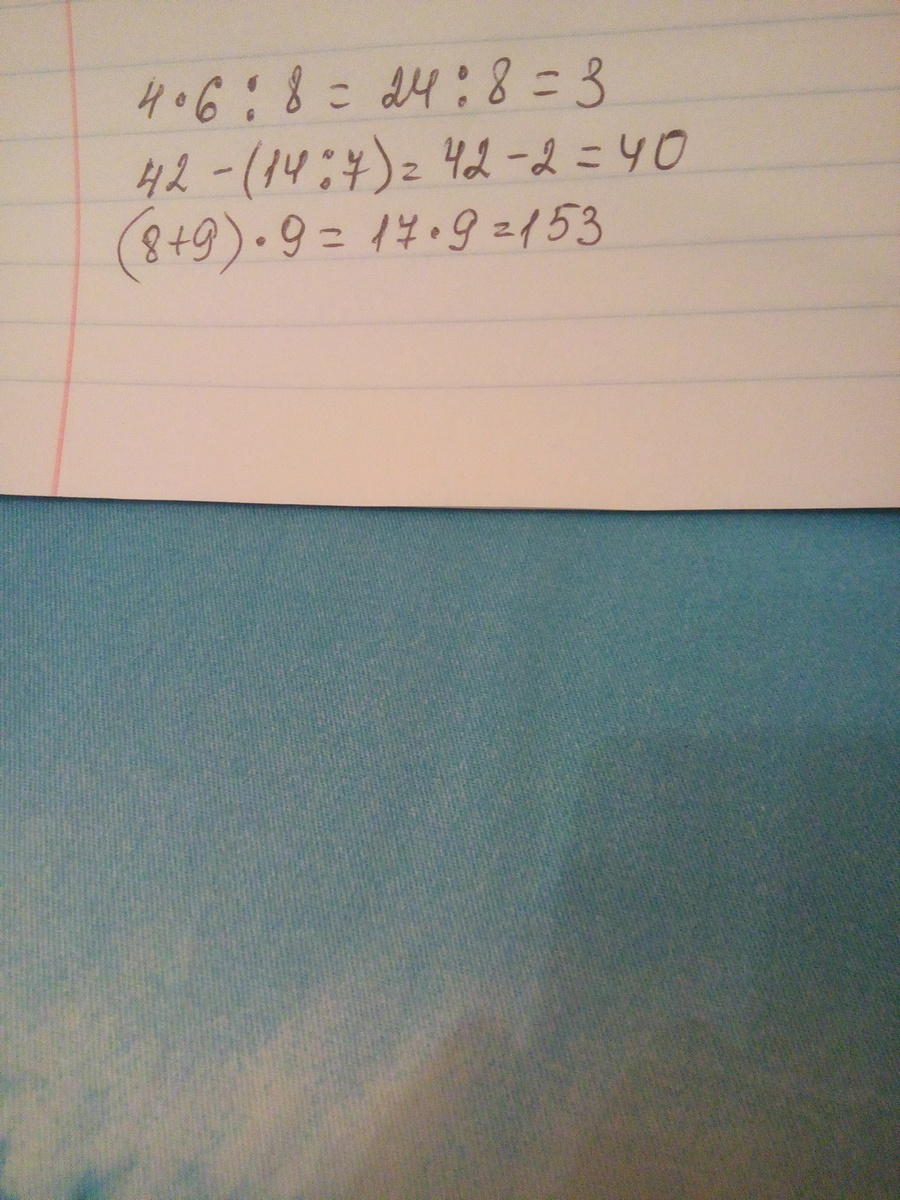 4·6:8=24:8=3
42-(14:7)=42-2=40
(8+9)·9=17·9=153